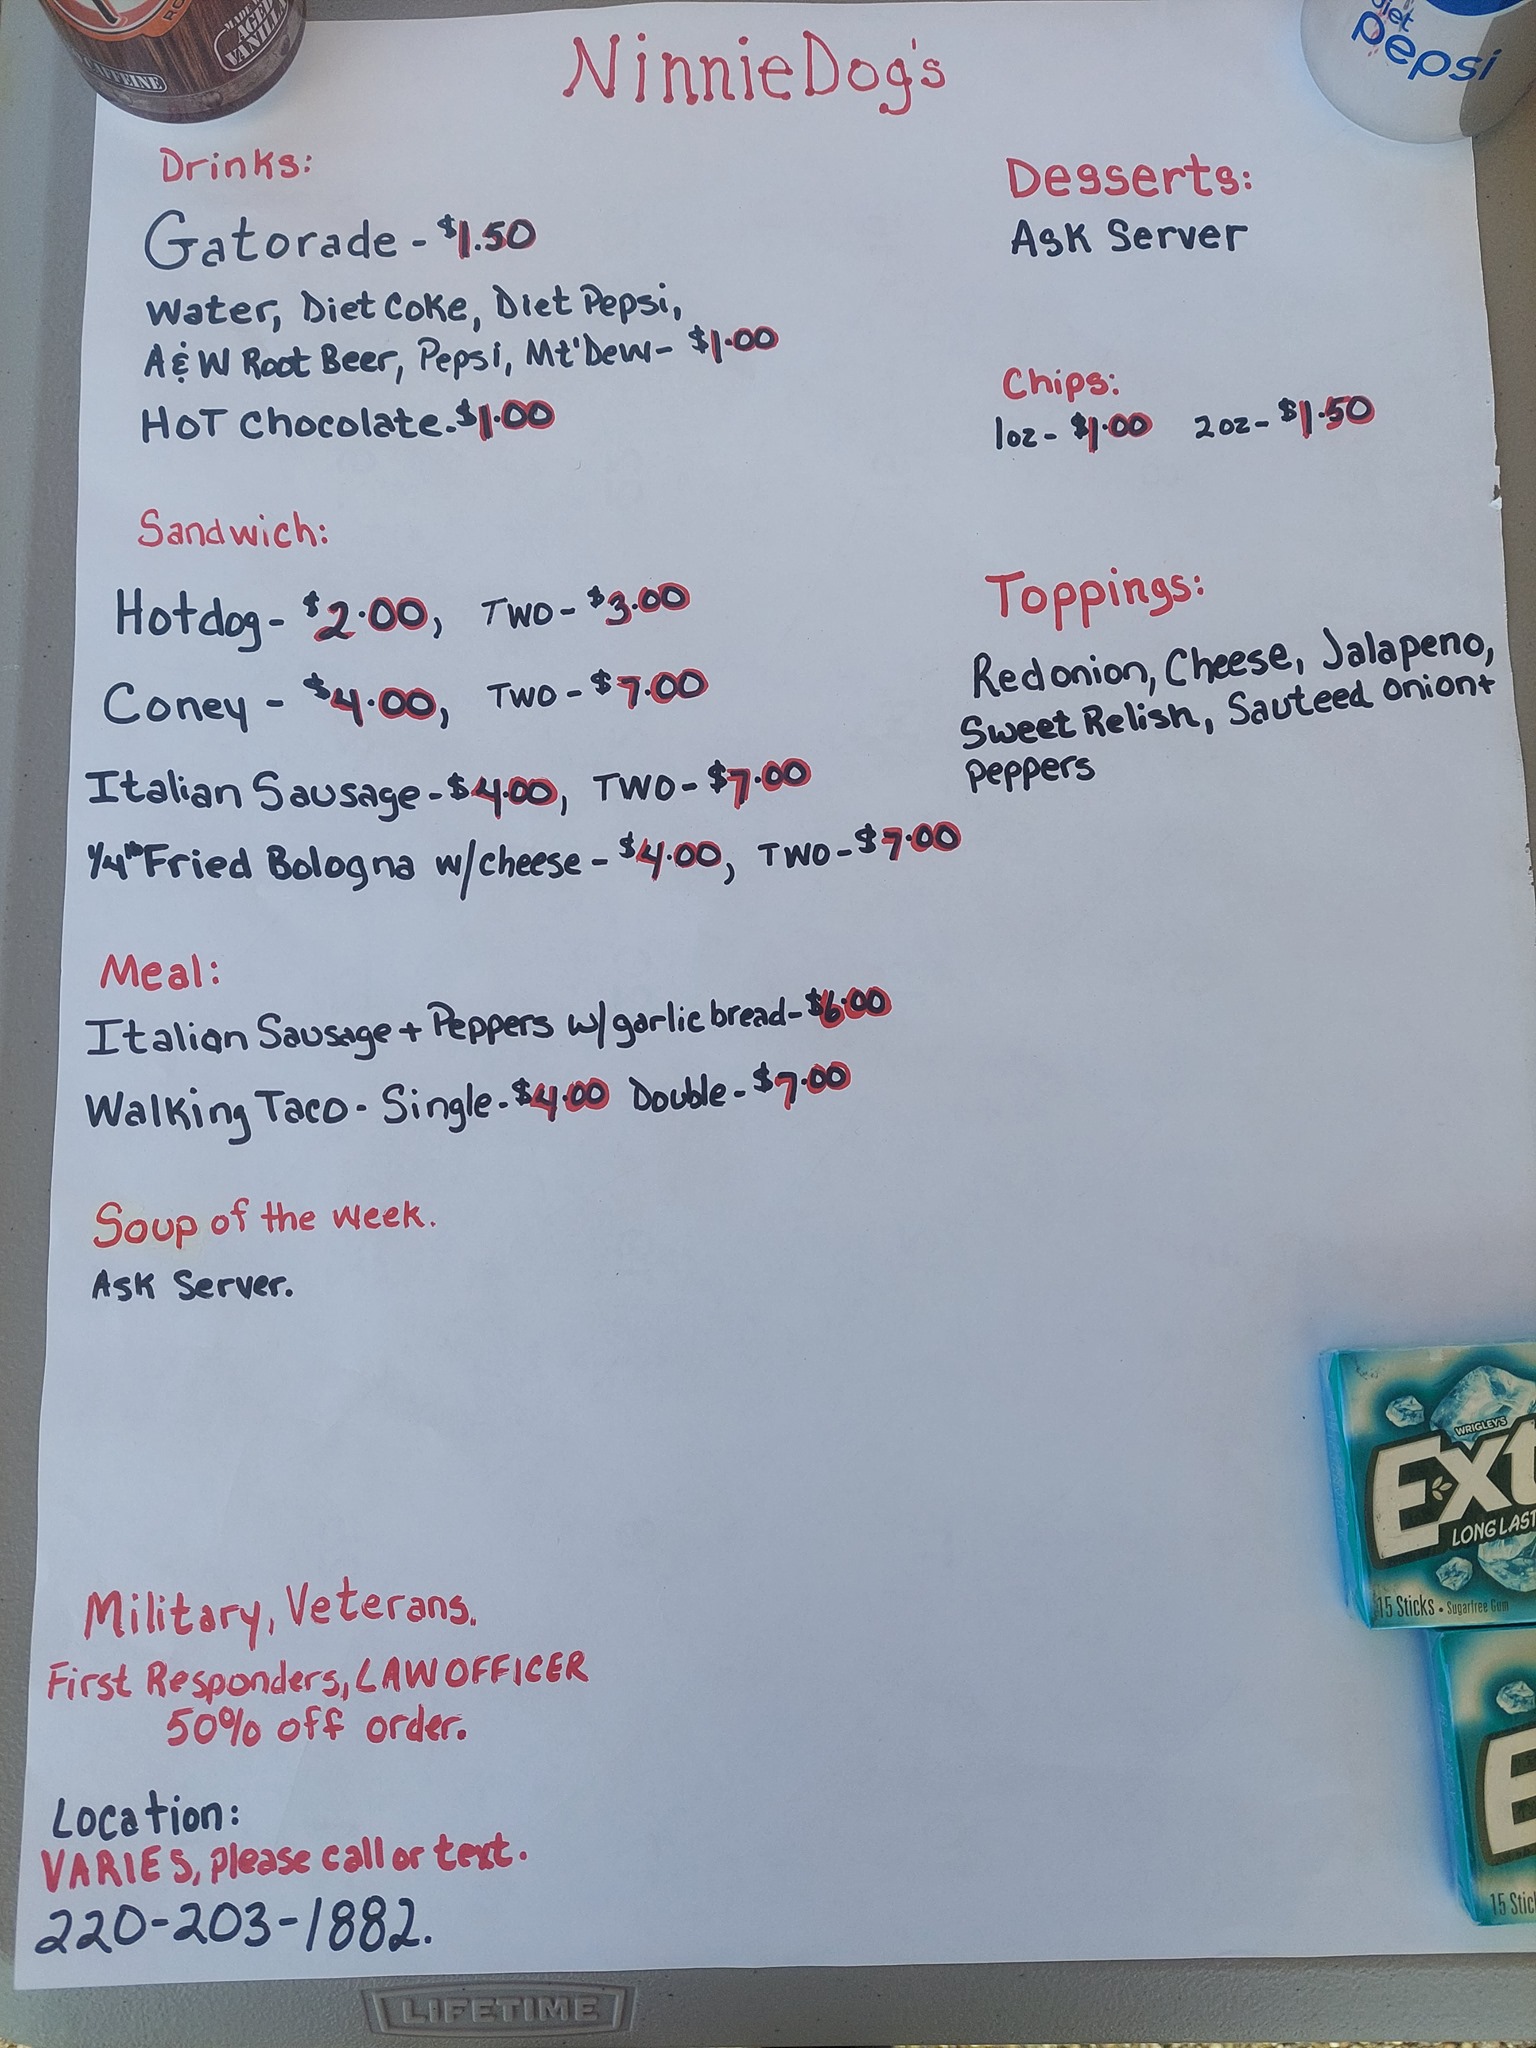 NinnieDog's
Drinks:
Gatorade - $1.50
Water, Diet Coke, Diet Pepsi,
A & W Root Beer, Pepsi, Mt'Dew- $1.00
HOT Chocolate-$1.00
Sandwich:
Hotdog- $2.00, TWO- $3.00
Coney - $4.00, TWO - $7.00
Italian Sausage-$4.00, TWO- $7.00
1/4lb Fried Bologna w/cheese - $4.00, TWO-$7.00
Meal:
Italian Sausage + Peppers w/garlic bread-$6.00
Walking Taco- Single-$4.00 Double-$7.00
Soup of the week.
Ask Server.
Desserts:
Ask Server
Chips:
1oz- $1.00 2oz- $1.50
Toppings:
Red onion, Cheese, Jalapeno,
Sweet Relish, Sauteed onion+
peppers
Military, Veterans,
First Responders, LAW OFFICER
50% off order.
Location:
VARIES, please call or text.
220-203-1882.
MADE
AGED
VANILLA
CAFFEINE
Diet
pepsi
WRIGLEY'S
Ext
LONG LAST
15 Sticks • Sugarfree Gum
E
15 Stic
LIFETIME